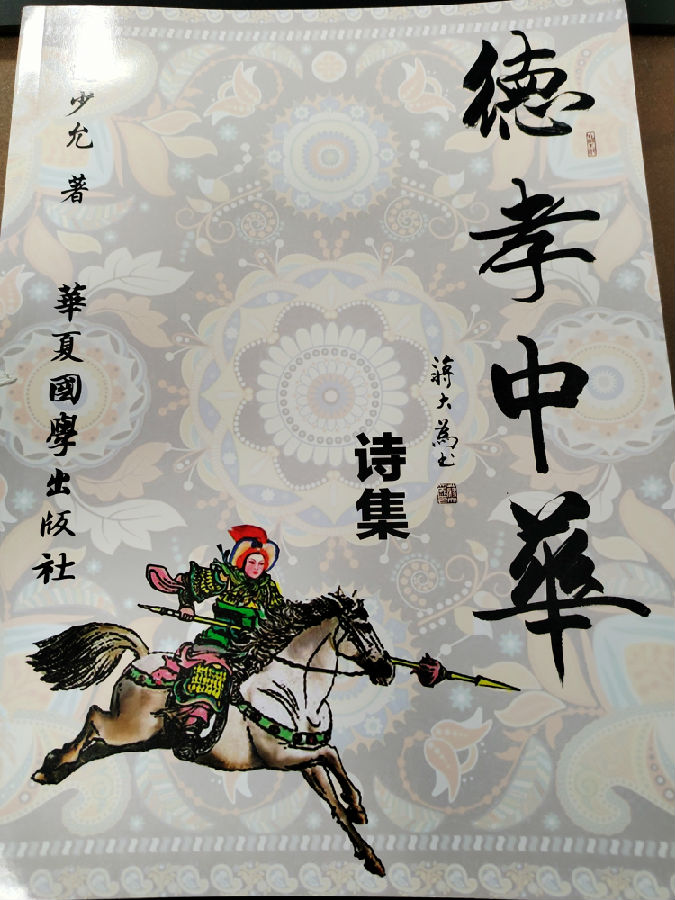 德孝中華
蒋大為书
诗集
少允 著
華夏國學出版社